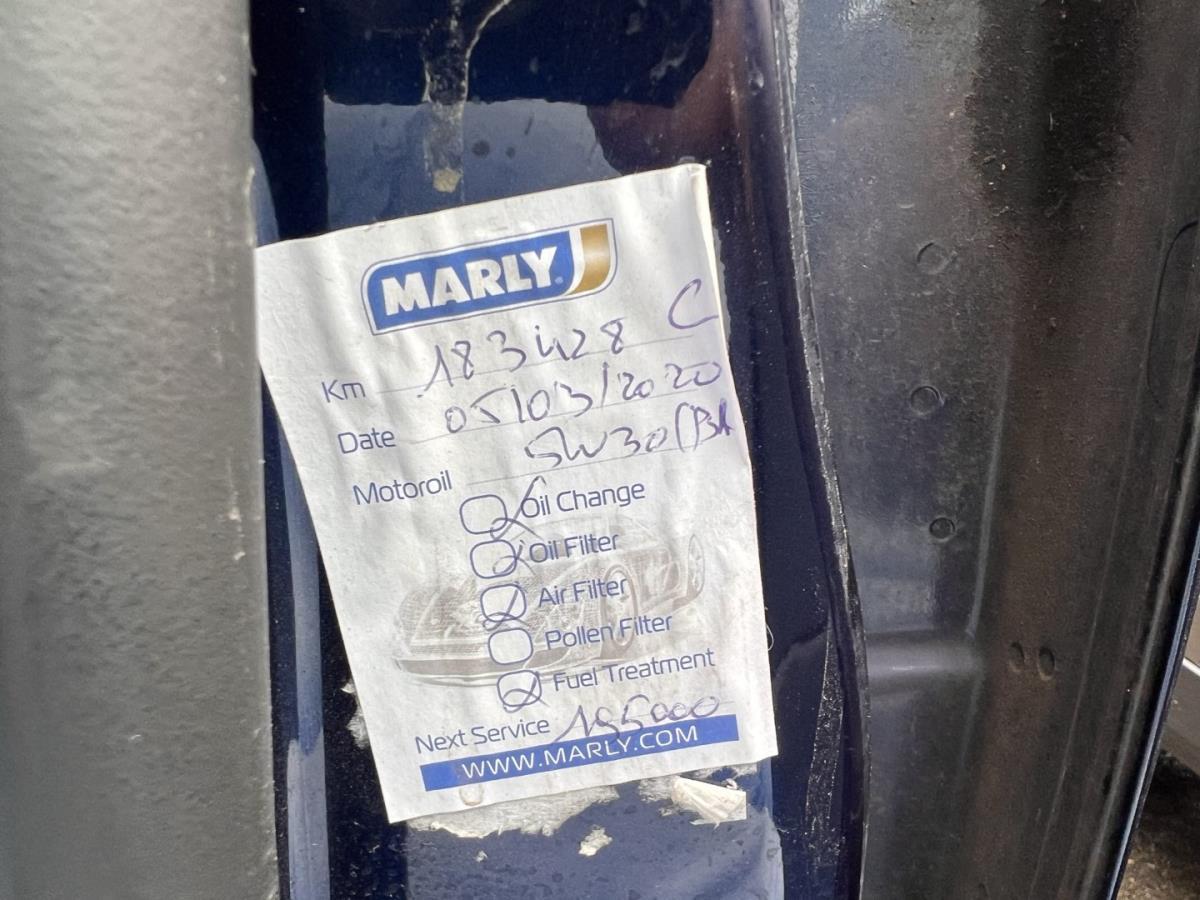 MARLY
Km 183428 C
Date 05/03/2020
Motoroil 5W30
Oil Change
Oil Filter
Air Filter
Pollen Filter
Fuel Treatment
Next Service 195000
WWW.MARLY.COM